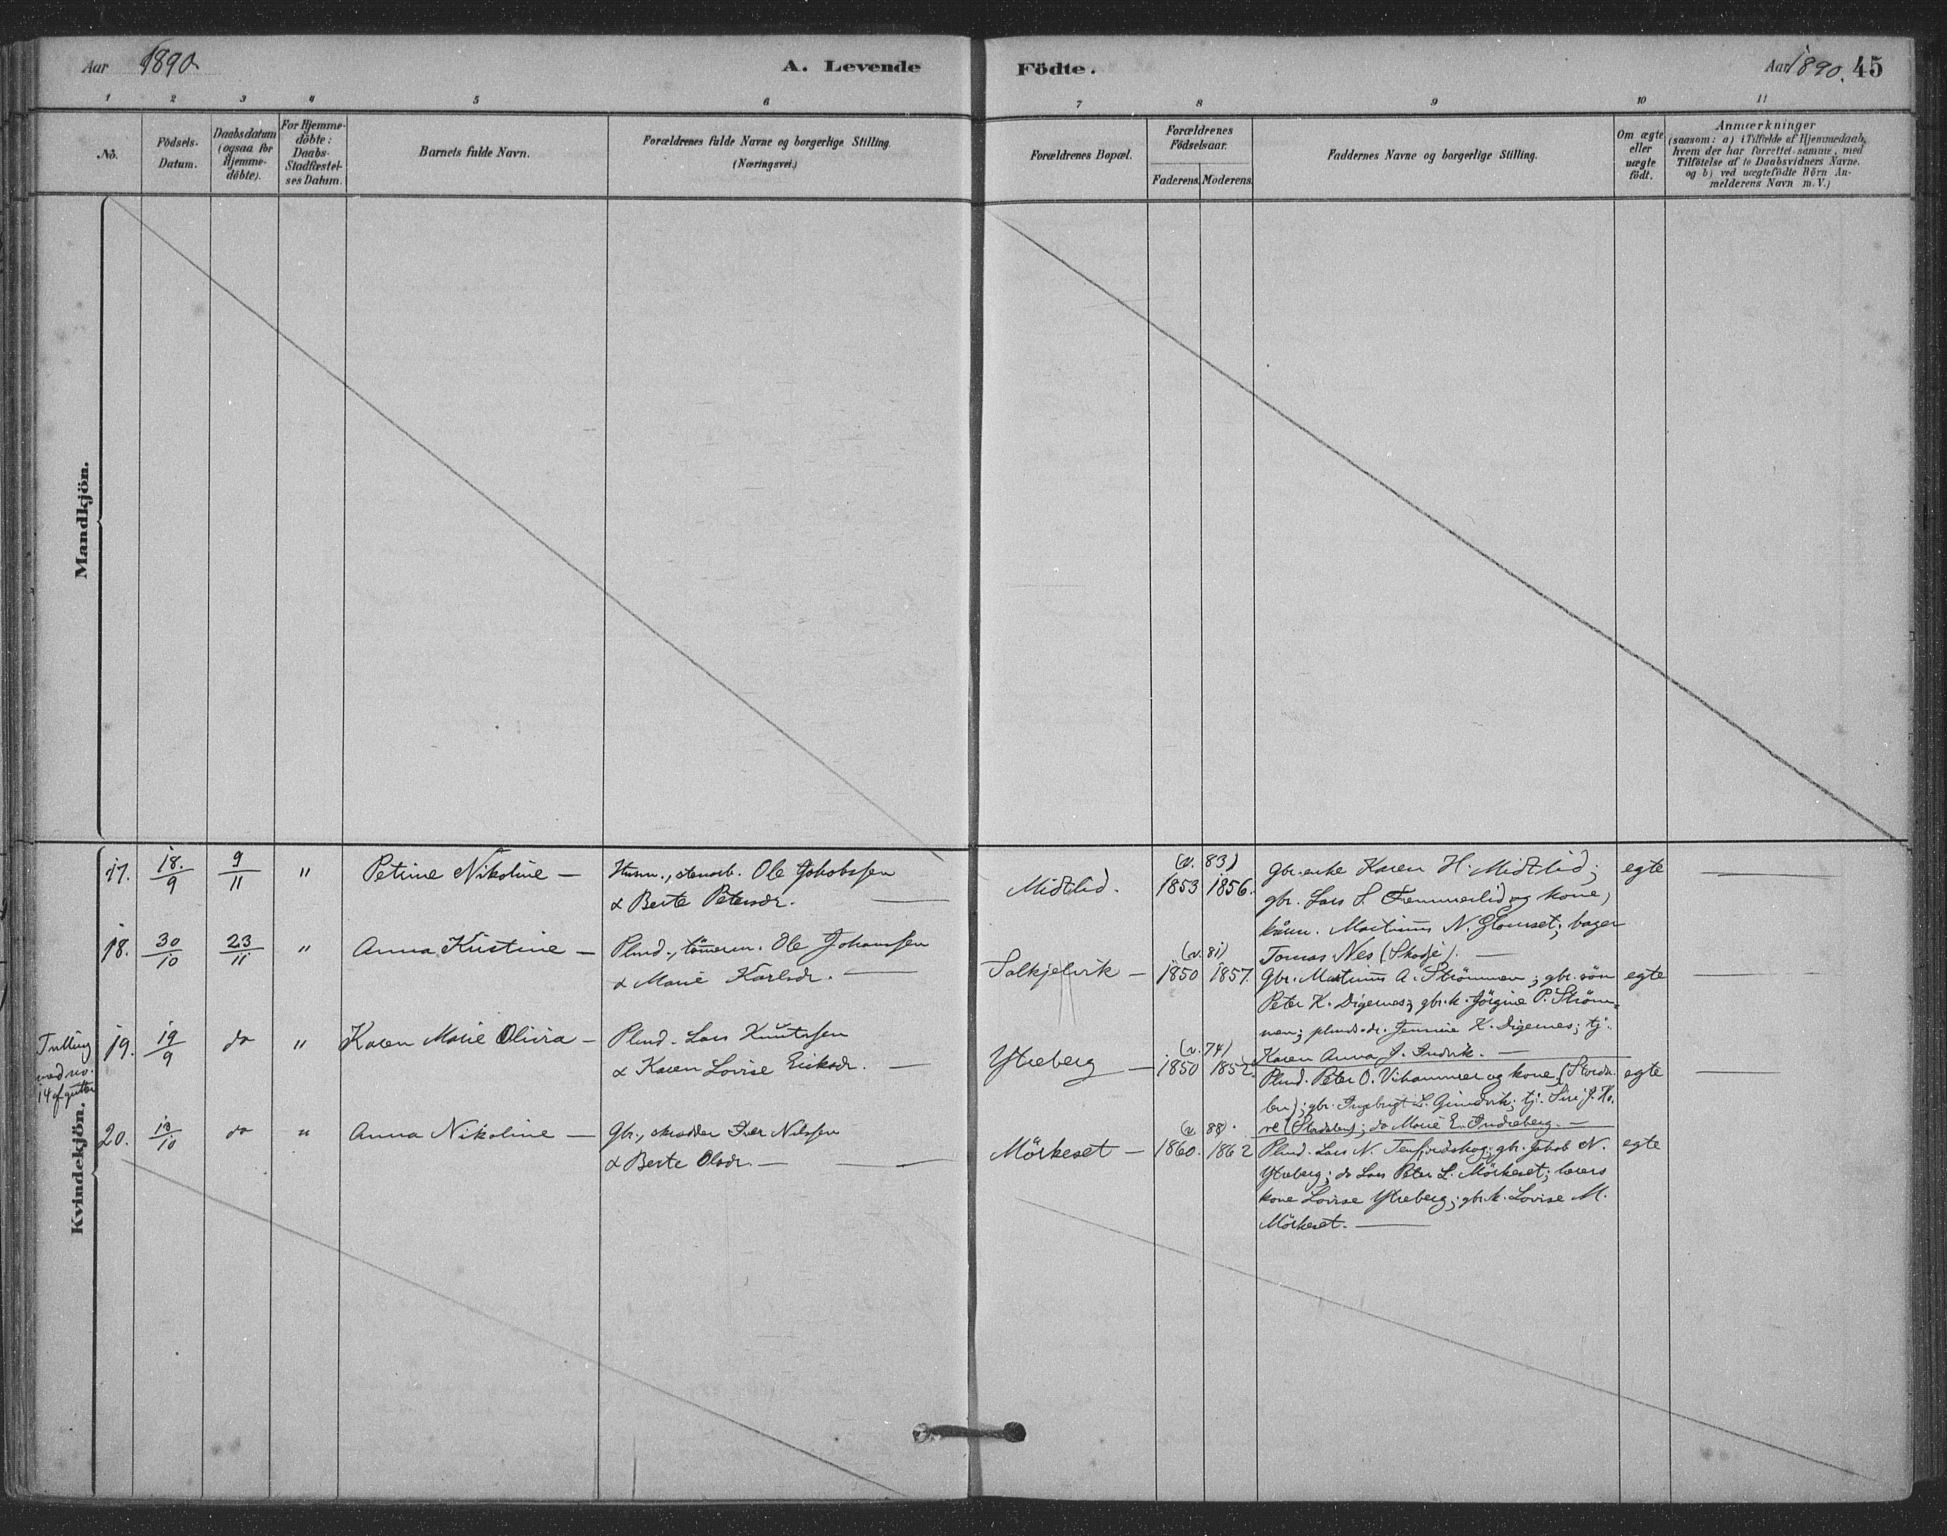 Aar 1890. A. Levende Födte. Aar 1890. 45
1 2 3 4 5 6 7 8 9 10 11
No.
Födsels-
Datum.
Daabsdatum
(ogsaa for
Hjemme-
döbte).
For Hjemme-
döbte:
Daabs-
Stadfæstel-
ses Datum.
Barnets fulde Navn.
Forældrenes fulde Navne og borgerlige Stilling.
(Næringsvei.)
Forældrenes Bopæl.
Forældrenes
Födselsaar.
Faderens. Moderens.
Faddernes Navne og borgerlige Stilling.
Om ægte
eller
uægte
födt.
Anmærkninger
(saasom: a) i Tilfælde af Hjemmedaab,
hvem der har forrettet samme, med
Tilföielse af to Daabsvidners Navne.
og b) ved uægtefödte Börn An-
melderens Navn m. V.)
Mandkjön.
Kvindekjön.
17. 18./9 9/11 " Petrine Nikoline —
Husm., stenarb. Ole Jakobssen
& Berte Petersdr. —
Midtlid.
(v. 83)
1853 1856.
gbr.enke Karen H. Midtlid;
gbr. Lars S. Fremmerlid og kone;
Martinus N. Glomset; bager
Tomas Nes (Skodje). —
egte
18. 30/10 23/11 " Anna Kristine —
Plmd., tömmerm. Ole Johanssen
& Marie Karlsdr. —
Solkjelvik —
(v. 81)
1850 1857.
Gbr. Martinus A. Strömmen; gbr.sön
Peter K. Digernes; gbr.k. Jörgine P. Ström-
men; plmdsdr. Jennine K. Digernes; tj.
Karen Anna J. Indvik. —
egte
Trilling
med no.
14 af gutter
19. 19/9 do " Karen Marie Olivia —
Plmd. Lars Knutssen
& Karen Lovise Eriksdr. —
Ytreberg —
(v. 74)
1850 1852.
Plmd. Peter O. Vihammer og kone (Stords-
len); gbr. Ingebrigt L. Gimdvik; tj. Siri J. Ho-
; do Marie E. Indreberg. —
egte
20. 13/10 do " Anna Nikoline —
Gbr., skrædder Iver Nilssen
& Berte Olsdr. —
Mörkeset —
(v. 88)
1860. 1862
Plmd. Lars N. Tenfjordskog; gbr. Jakob N.
Ytreberg; do Lars Peter L. Mörkeset; lærers
kone Lovise Ytreberg; gbr.k. Lovise M.
Mörkeset. —
egte